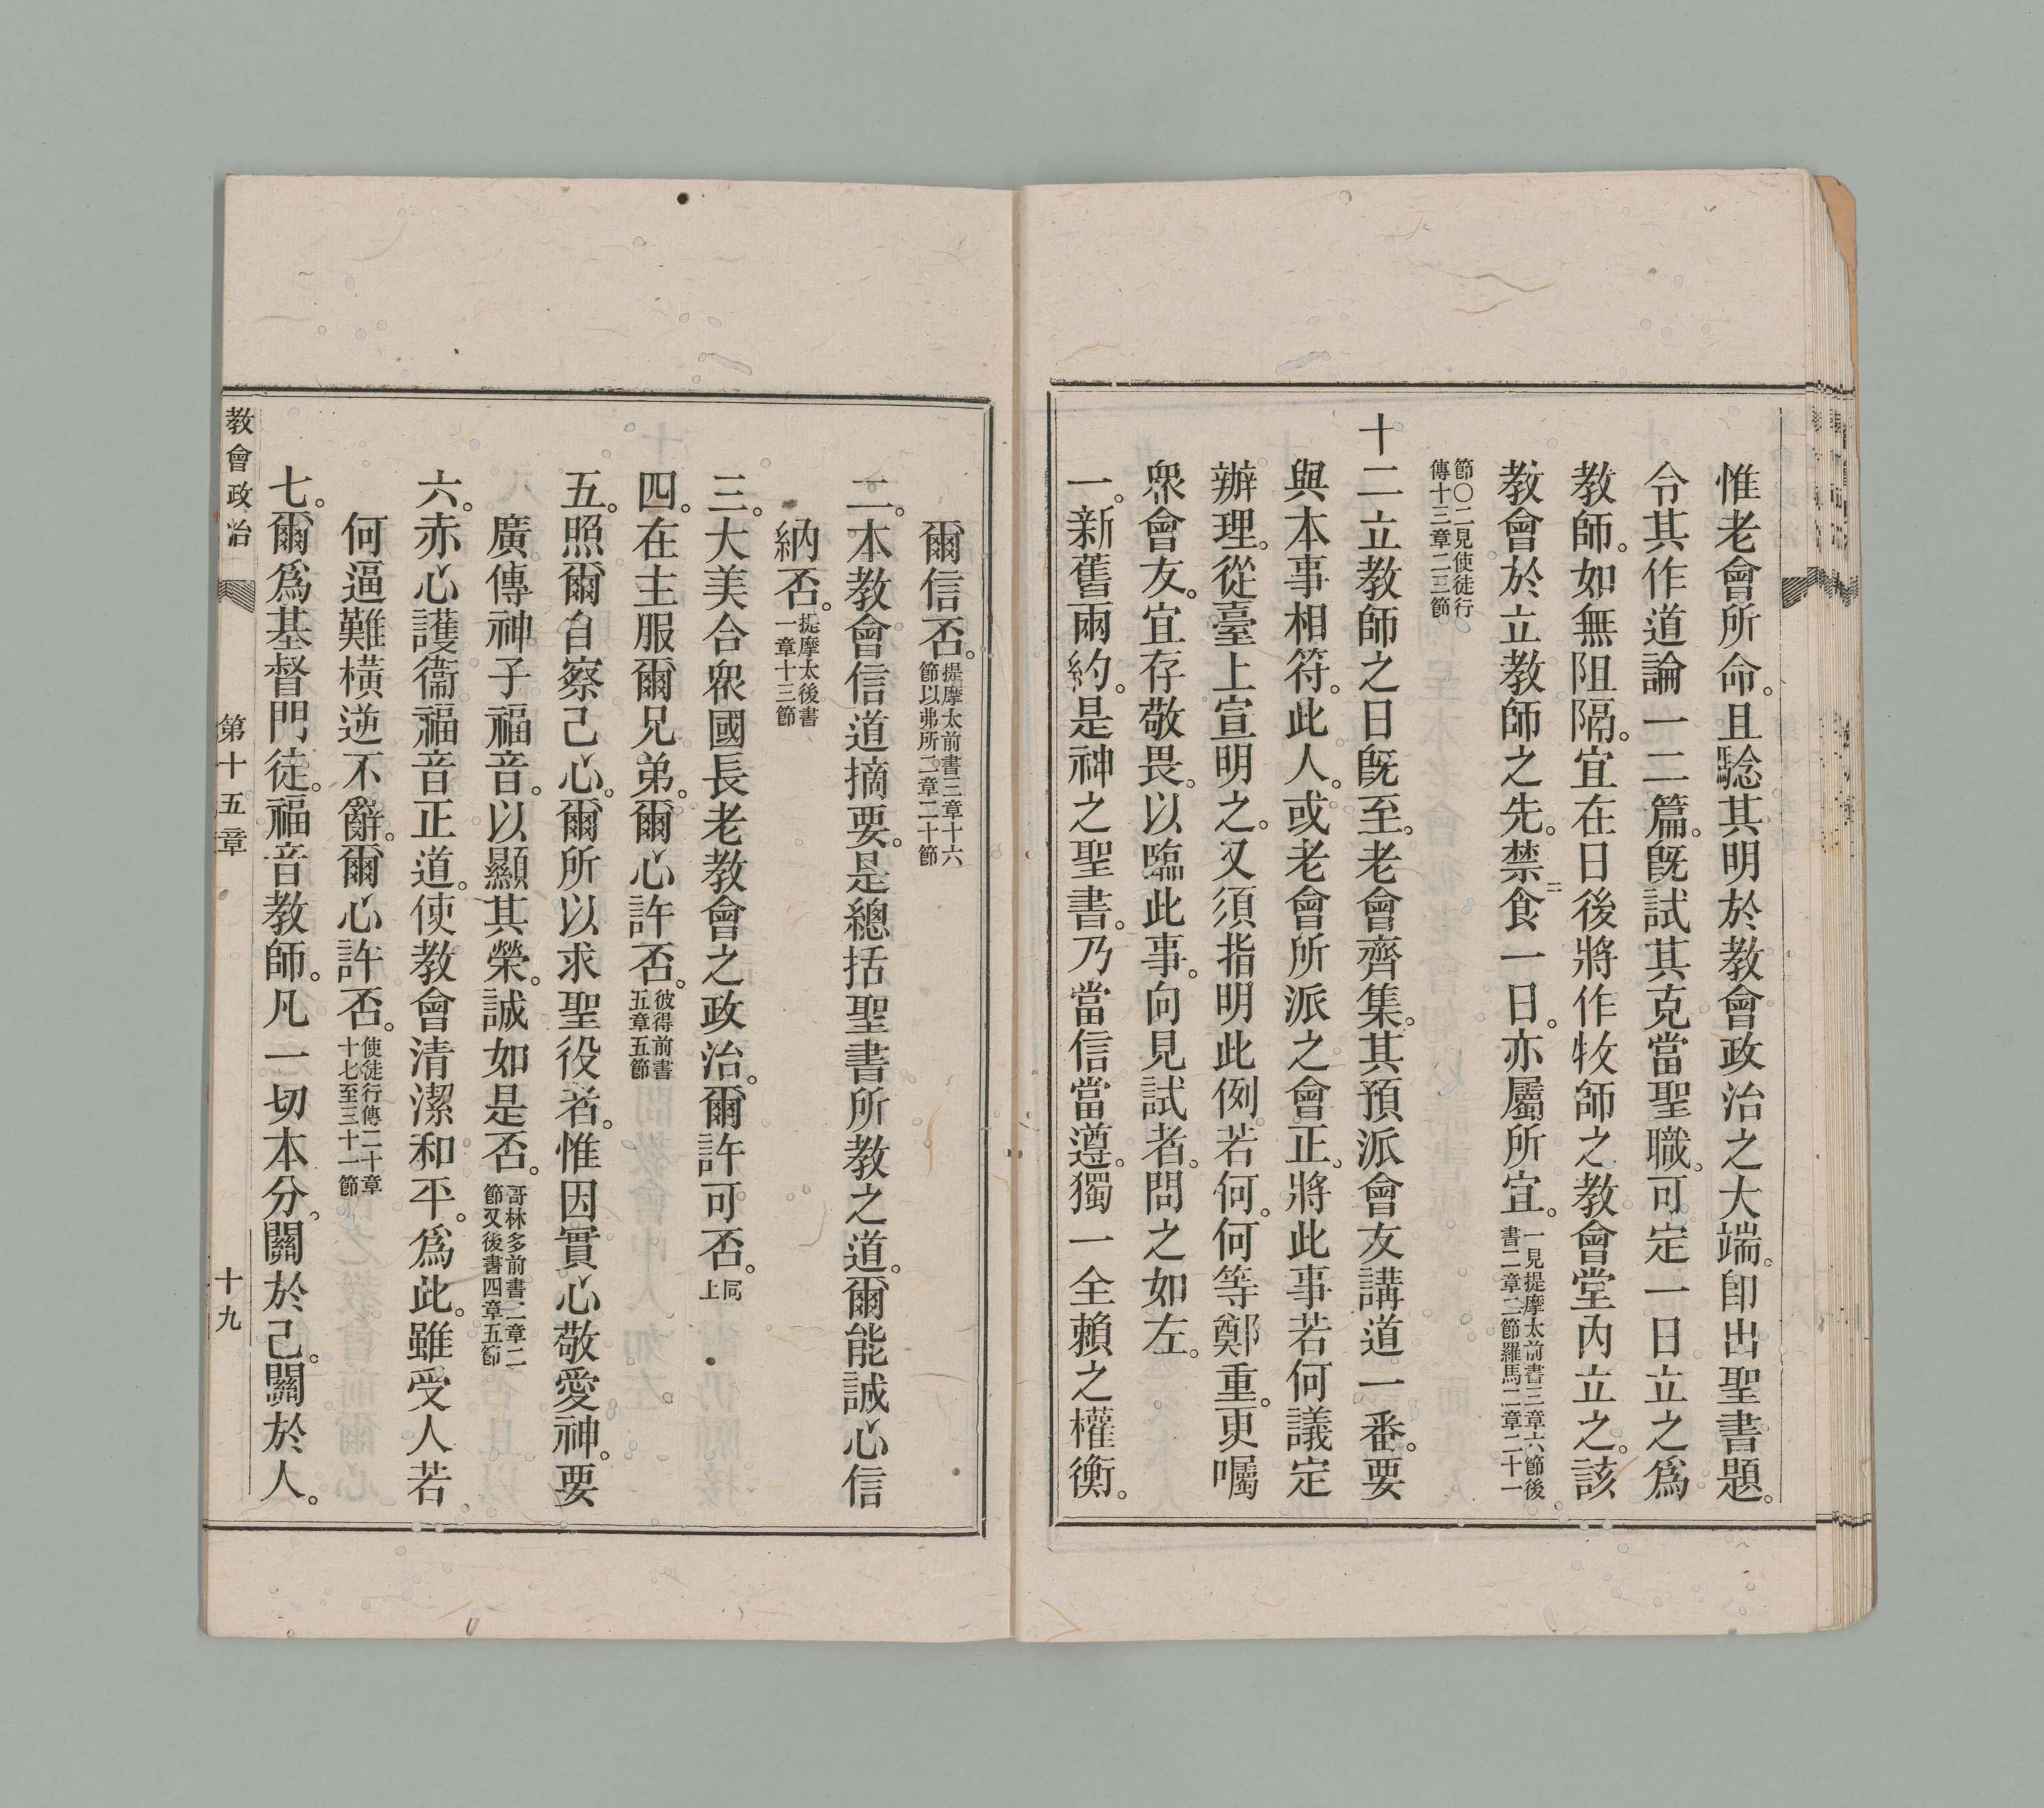 惟老會所命。且騐其明於教會政治之大端。卽出聖書題。
令其作道論一二篇。旣試其克當聖職。可定一日立之爲
教師。如無阻隔。宜在日後將作牧師之教會堂內立之。該
教會於立教師之先。禁食二一日。亦屬所宜。一見提摩太前書三章六節後書二章二節羅馬二章二十一
節〇二見使徒行傳十三章二三節。
十二立教師之日旣至。老會齊集。其預派會友講道一番。要
與本事相符。此人。或老會所派之會正。將此事若何議定
辦理。從臺上宣明之。又須指明此例。若何。何等鄭重。更囑
衆會友。宜存敬畏。以臨此事。向見試者。問之如左。
一。新舊兩約。是神之聖書。乃當信當遵。獨一全賴之權衡。
爾信否。提摩太前書三章十六節以弗所二章二十節
二。本教會信道摘要。是總括聖書所教之道。爾能誠心信
納否。提摩太後書一章十三節
三。大美合衆國長老教會之政治。爾許可否。同上
四。在主服爾兄弟。爾心許否。彼得前書五章五節
五。照爾自察己心。爾所以求聖役者。惟因實心敬愛神。要
廣傳神子福音。以顯其榮。誠如是否。哥林多前書二章二節又後書四章五節
六。赤心護衞福音正道。使教會清潔和平。爲此。雖受人若
何逼難橫逆不辭。爾心許否。使徒行傳二十章十七至三十一節
七。爾爲基督門徒。福音教師。凡一切本分。關於己。關於人。
教會政治 第十五章 十九